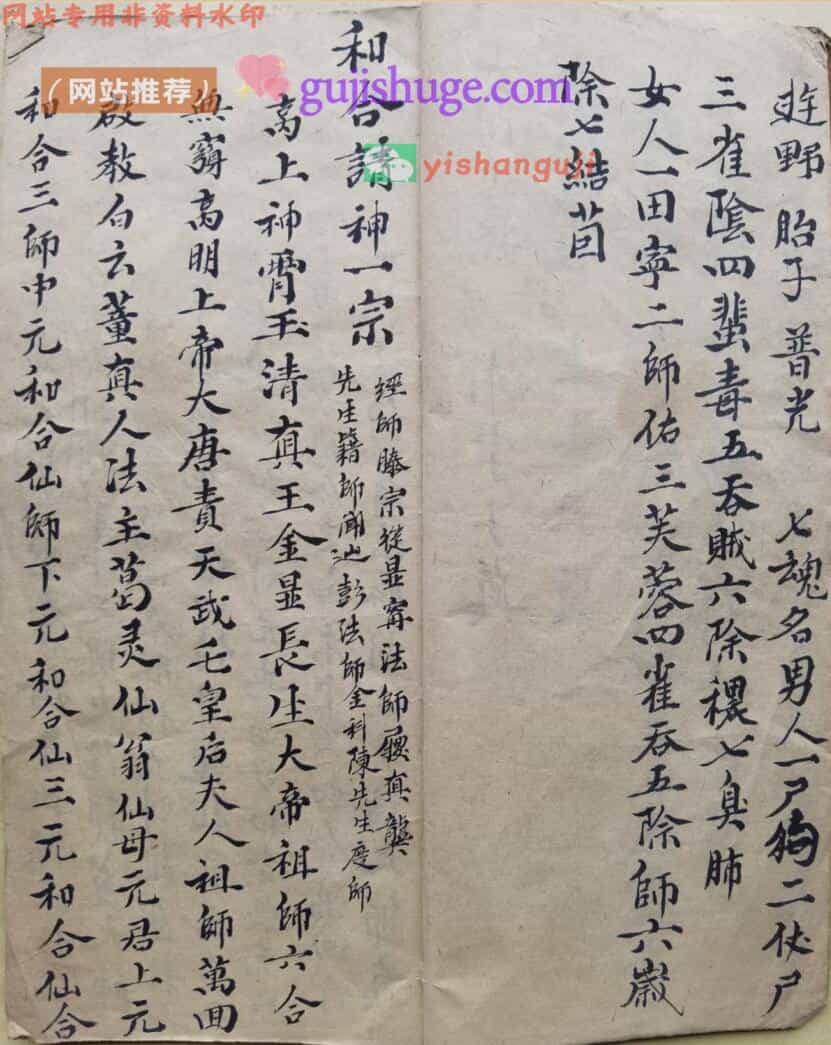 网站专用非资料水印
（网站推荐）
gujishuge.com
yishanguji
遊野 胎子 普光 七魂名男人一尸狗二伏尸
三雀陰四蜚毒五吞賊六除穢七臭肺
女人一田寧二師佑三芙蓉四雀吞五除師六嵗
除七結苖
和合請神一宗
經師滕宗從显寗法師
真龔
先生籍師
彭法師金科陳先生度師
高上神霄玉清真王金显長生大帝祖師六合
無窮高明上帝大唐責天武七皇后夫人祖師萬囬
啟教白云董真人法主葛灵仙翁仙母元君上元
和合三師中元和合仙師下元和合仙三元和合仙合